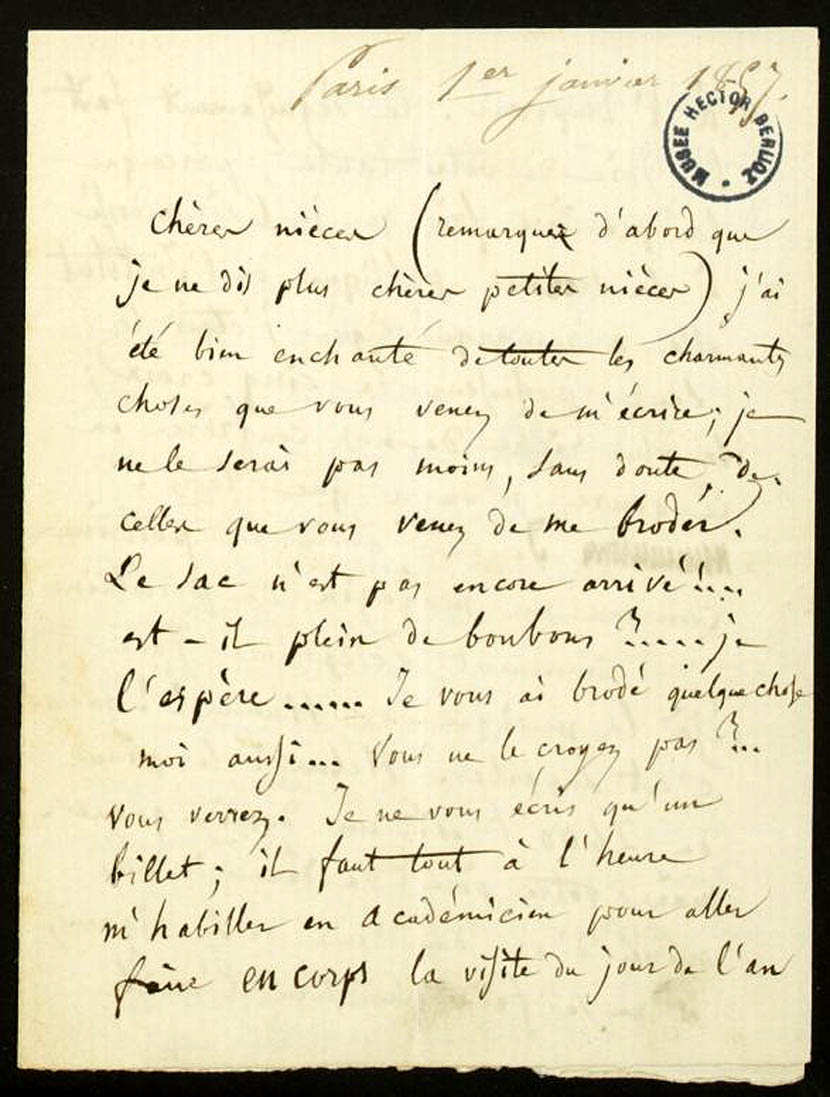 Paris 1er janvier 1857.
MUSEE HECTOR BERLIOZ
chères nièces (remarquez d'abord que
je ne dis plus chères petites nièces) j'ai
été bien enchanté de toutes les charmantes
choses que vous venez de m'écrire; je
ne le serai pas moins, sans doute, de
celles que vous venez de me broder.
Le sac n'est pas encore arrivé!...
est-il plein de bonbons ?.... je
l'espère...... Je vous ai brodé quelque chose
moi aussi... Vous ne le croyez pas ?...
vous verrez. Je ne vous écris qu'un
billet; il faut tout à l'heure
m'habiller en académicien pour aller
faire en corps la visite du jour de l'an